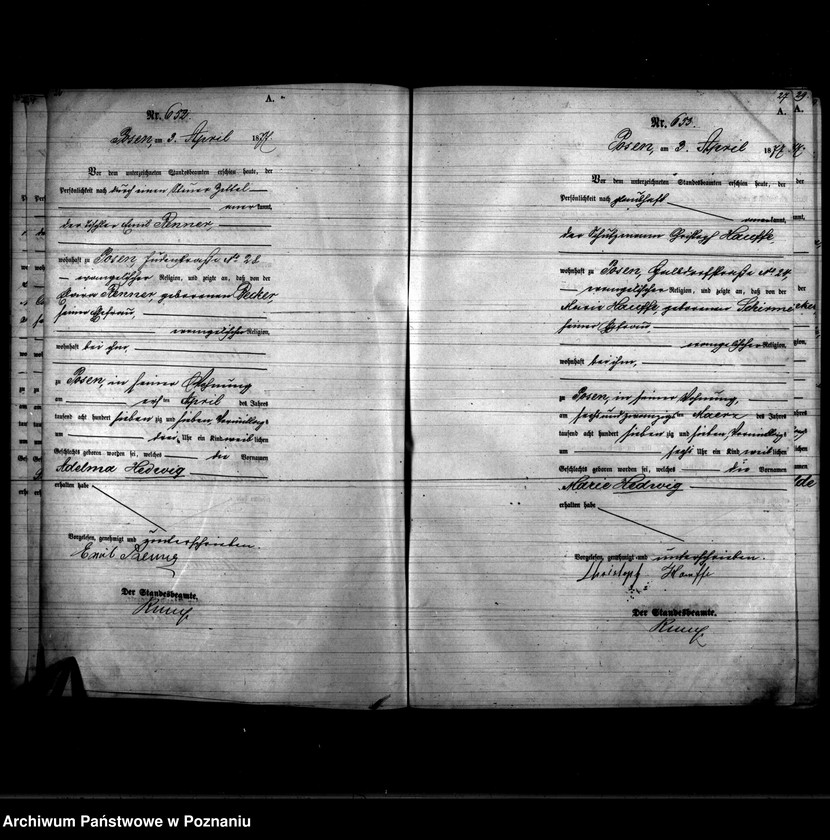 A.
Nr. 652.
Posen, am 3. April 1877.
Vor dem unterzeichneten Standesbeamten erschien heute, der
Persönlichkeit nach durch einen Steuer Zettel
anerkannt,
der Tischler Emil Renner
wohnhaft zu Posen, Judenstraße No 28
evangelischer Religion, und zeigte an, daß von der
Renner geborenen Becker,
seiner Ehefrau,
evangelischer Religion,
wohnhaft bei ihm,
zu Posen, in seiner Wohnung
am ersten April des Jahres
tausend acht hundert siebenzig und sieben Vormittags
um drei Uhr ein Kind weiblichen
Geschlechts geboren worden sei, welches die Vornamen
Adelma Hedewig
erhalten habe
Vorgelesen, genehmigt und unterschrieben.
Emil
Der Standesbeamte.
27
A.
Nr. 653.
Posen, am 3. April 1877
Vor dem unterzeichneten Standesbeamten erschien heute, der
Persönlichkeit nach
anerkannt,
der Schutzmann Christoph Hauffe,
wohnhaft zu Posen, Halbdorfstraße No 24
evangelischer Religion, und zeigte an, daß von der
Marie Hauffe, geborenen Schirme
seiner Ehefrau,
evangelischer Religion,
wohnhaft bei ihm,
zu Posen, in seiner Wohnung,
am sechsundzwanzigsten Maerz des Jahres
tausend acht hundert siebenzig und sieben Vormittags
um sechs Uhr ein Kind weiblichen
Geschlechts geboren worden sei, welches die Vornamen
Marie Hedwig
erhalten habe
Vorgelesen, genehmigt und unterschrieben.
Christoph Hauffe
Der Standesbeamte.
29
A.
Archiwum Państwowe w Poznaniu